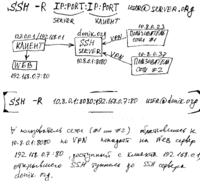 SSH -R IP:PORT:IP:PORT user@server.org
SERVER CLIENT
10.8.0.23
192.168.0.1
denik.org
VPN
КЛИЕНТ
SSH
SERVER
ПОЛЬЗОВАТЕЛЬ
СЕТИ #1
10.8.0.37
VPN
WEB
ПОЛЬЗОВАТЕЛЬ
СЕТИ #2
192.168.0.7:80
SSH -R 10.8.0.1:8080:192.168.0.7:80 user@denik.org
∀ пользователь сети (#1 или #2) обратившись к
10.8.0.1:8080 по VPN попадёт на Web сервер
192.168.0.7:80, доступный с клиента 192.168.0.1
открывшего SSH туннель до SSH сервера
denik.org.